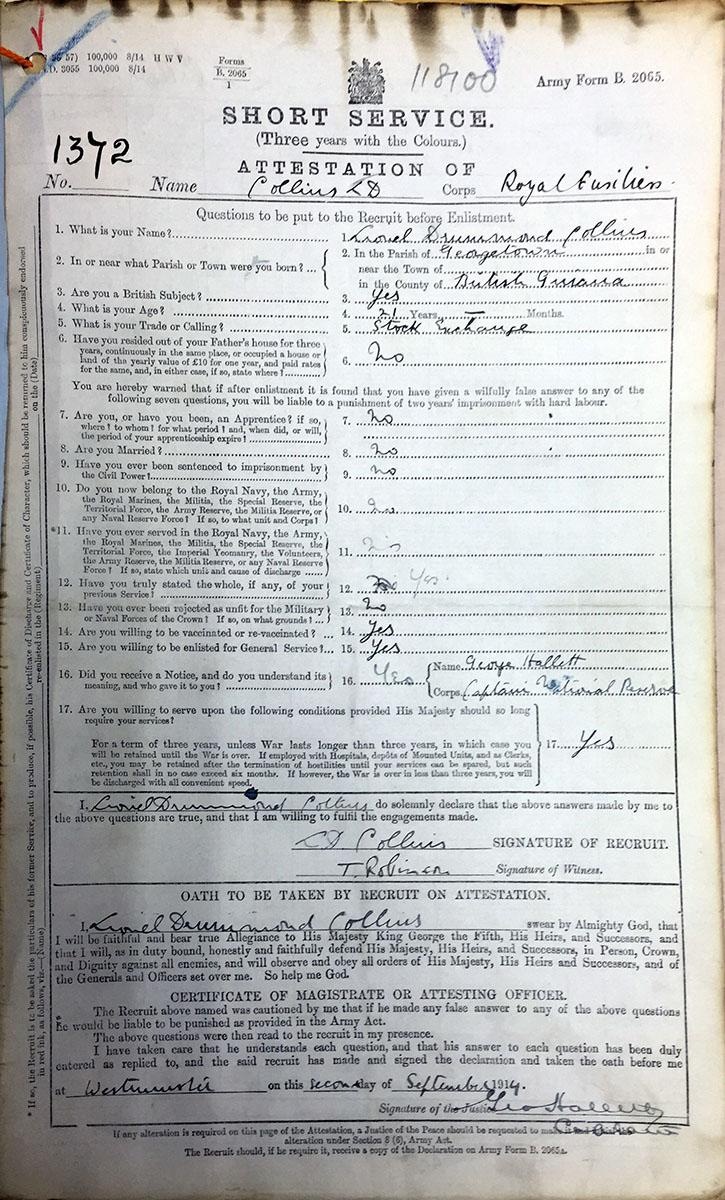 57) 100,000 8/14 H W V
3055 100,000 8/14
Forms
B. 2065
1
118100
Army Form B. 2065.
SHORT SERVICE.
(Three years with the Colours.)
1372
ATTESTATION OF
No. Name Collins LD Corps Royal Fusiliers
Questions to be put to the Recruit before Enlistment.
1. What is your Name? 1. Lionel Drummond Collins
2. In or near what Parish or Town were you born? ... 2. In the Parish of Georgetown in or
near the Town of
in the County of British Guiana
3. Are you a British Subject? 3. Yes
4. What is your Age? 4. 21 Years. — Months.
5. What is your Trade or Calling? 5. Stock Exchange
6. Have you resided out of your Father's house for three
years, continuously in the same place, or occupied a house or
land of the yearly value of £10 for one year, and paid rates
for the same, and, in either case, if so, state where? 6. No
You are hereby warned that if after enlistment it is found that you have given a wilfully false answer to any of the
following seven questions, you will be liable to a punishment of two years' imprisonment with hard labour.
7. Are you, or have you been, an Apprentice? if so,
where? to whom? for what period? and, when did, or will,
the period of your apprenticeship expire? 7. No
8. Are you Married? 8. No
9. Have you ever been sentenced to imprisonment by
the Civil Power? 9. No
10. Do you now belong to the Royal Navy, the Army,
the Royal Marines, the Militia, the Special Reserve, the
Territorial Force, the Army Reserve, the Militia Reserve, or
any Naval Reserve Force? If so, to what unit and Corps? 10. No
*11. Have you ever served in the Royal Navy, the Army,
the Royal Marines, the Militia, the Special Reserve, the
Territorial Force, the Imperial Yeomanry, the Volunteers,
the Army Reserve, the Militia Reserve, or any Naval Reserve
Force? If so, state which unit and cause of discharge 11.
12. Have you truly stated the whole, if any, of your
previous Service? 12. No Yes
13. Have you ever been rejected as unfit for the Military
or Naval Forces of the Crown? If so, on what grounds? 13. No
14. Are you willing to be vaccinated or re-vaccinated? 14. Yes
15. Are you willing to be enlisted for General Service? 15. Yes
16. Did you receive a Notice, and do you understand its
meaning, and who gave it to you? 16. Yes Name George Hallett
Corps Captain National Reserve
17. Are you willing to serve upon the following conditions provided His Majesty should so long
require your services?
For a term of three years, unless War lasts longer than three years, in which case you
will be retained until the War is over. If employed with Hospitals, depôts of Mounted Units, and as Clerks,
etc., you may be retained after the termination of hostilities until your services can be spared, but such
retention shall in no case exceed six months. If however, the War is over in less than three years, you will
be discharged with all convenient speed. 17. Yes
I, Lionel Drummond Collins do solemnly declare that the above answers made by me to
the above questions are true, and that I am willing to fulfil the engagements made.
LD Collins SIGNATURE OF RECRUIT.
T. Robinson Signature of Witness.
OATH TO BE TAKEN BY RECRUIT ON ATTESTATION.
I, Lionel Drummond Collins swear by Almighty God, that
I will be faithful and bear true Allegiance to His Majesty King George the Fifth, His Heirs, and Successors, and
that I will, as in duty bound, honestly and faithfully defend His Majesty, His Heirs, and Successors, in Person, Crown,
and Dignity against all enemies, and will observe and obey all orders of His Majesty, His Heirs and Successors, and of
the Generals and Officers set over me. So help me God.
CERTIFICATE OF MAGISTRATE OR ATTESTING OFFICER.
The Recruit above named was cautioned by me that if he made any false answer to any of the above questions
he would be liable to be punished as provided in the Army Act.
The above questions were then read to the recruit in my presence.
I have taken care that he understands each question, and that his answer to each question has been duly
entered as replied to, and the said recruit has made and signed the declaration and taken the oath before me
at Westminster on this second day of September 1914.
Signature of the Justice Geo Hallett
If any alteration is required on this page of the Attestation, a Justice of the Peace should be requested to
alteration under Section 8 (6), Army Act.
The Recruit should, if he require it, receive a copy of the Declaration on Army Form B. 2065A.
* If so, the Recruit is to be asked the particulars of his former Service, and to produce, if possible, his Certificate of Discharge and Certificate of Character, which should be returned to him conspicuously endorsed
in red ink, as follows, viz.— (Name) re-enlisted in the (Regiment) on the (Date)